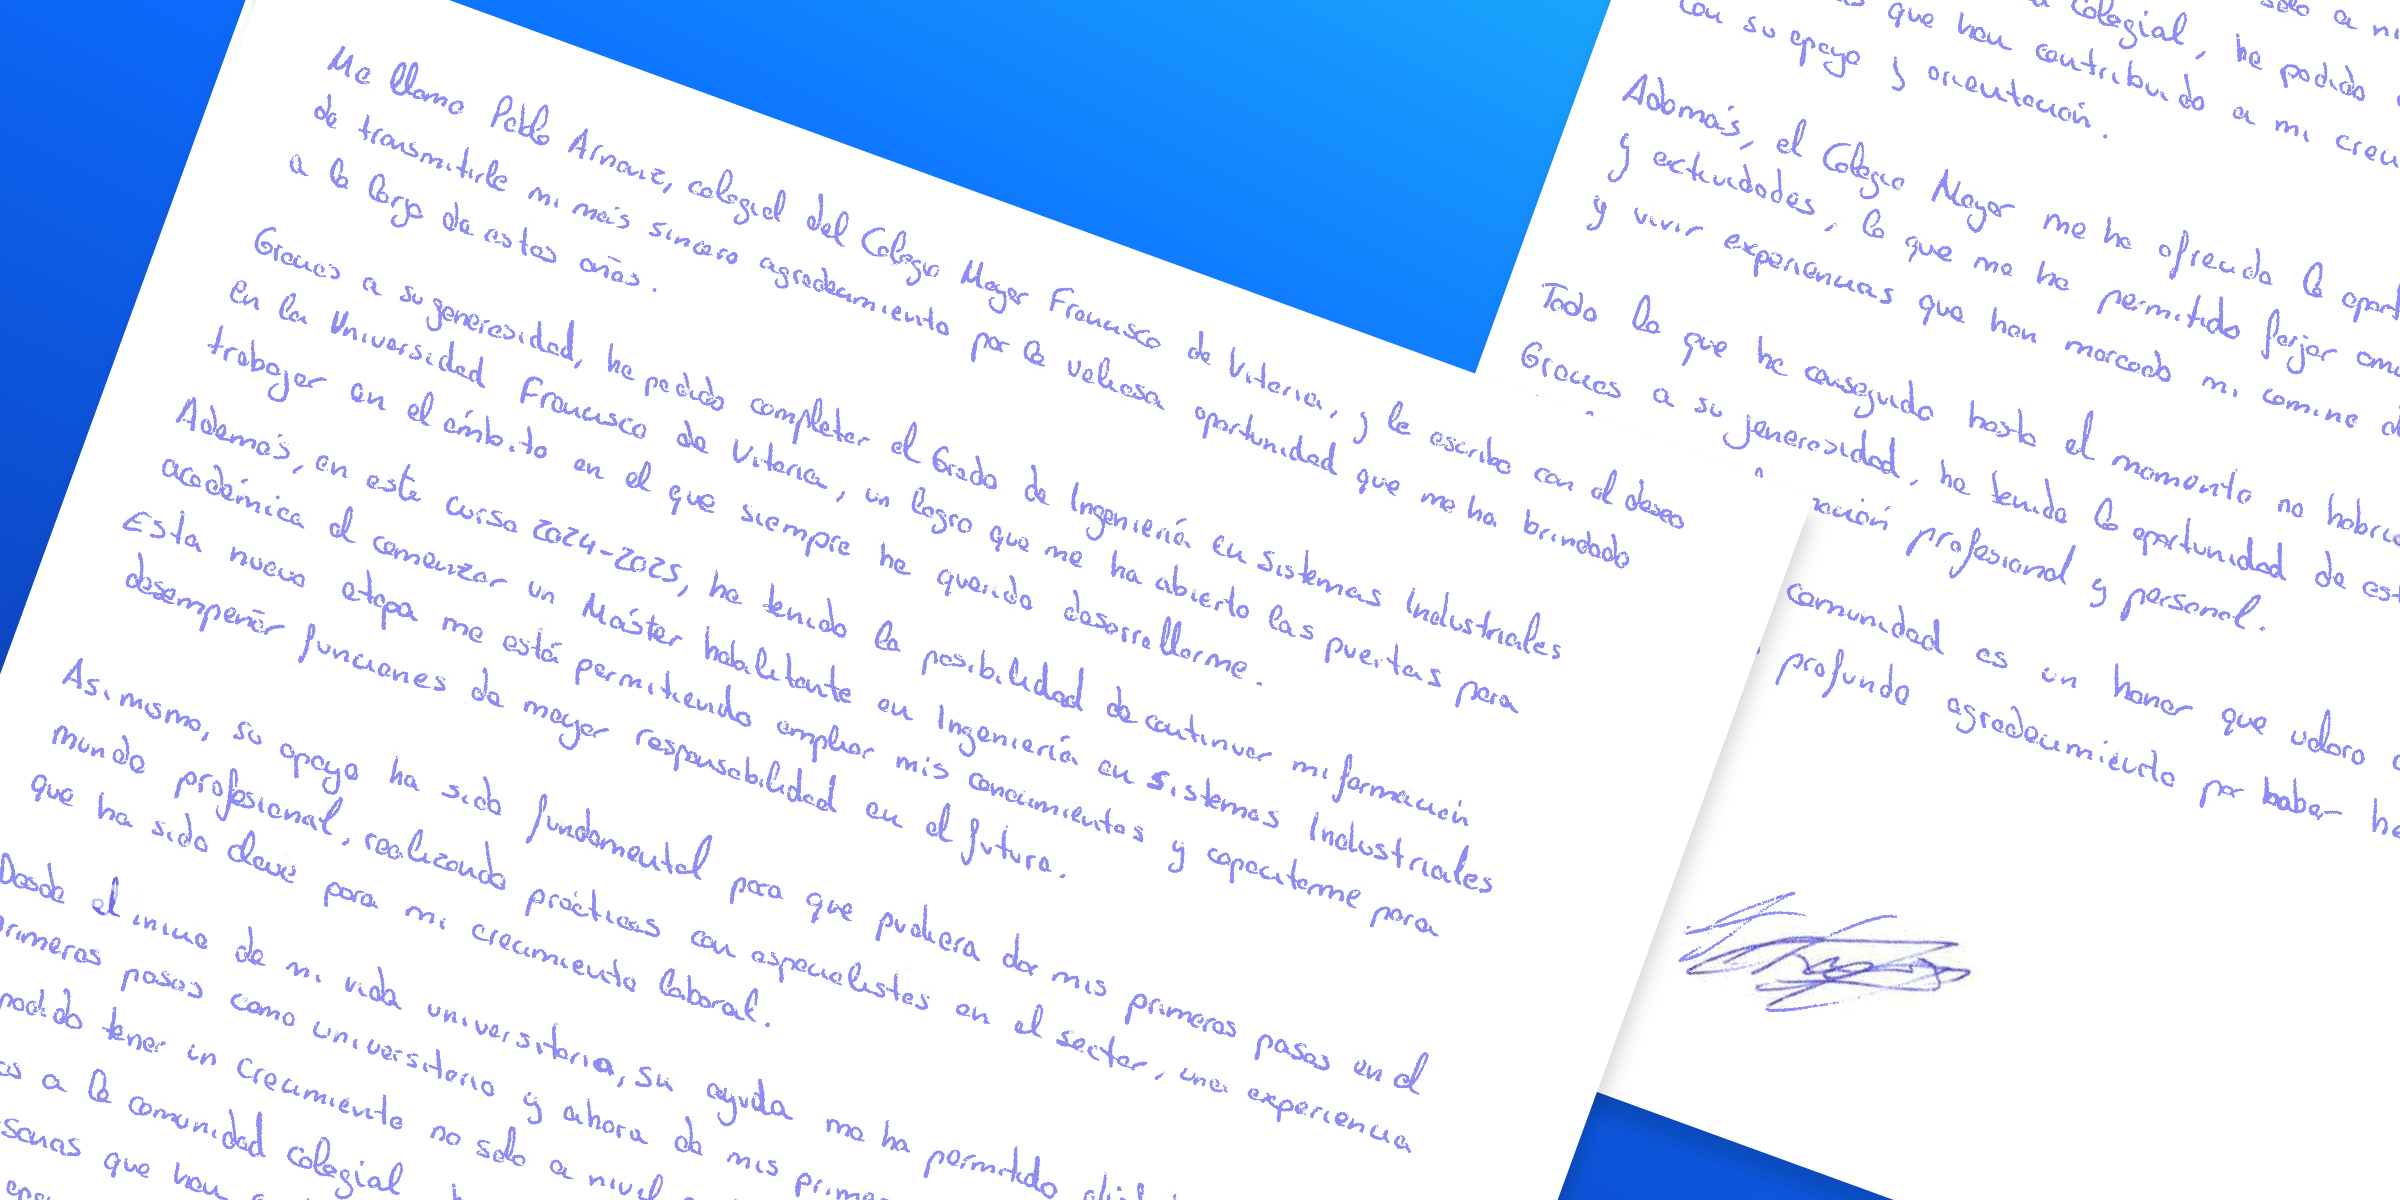 Me llamo Pablo Arnaiz, colegial del Colegio Mayor Francisco de Vitoria, y le escribo con el deseo
de transmitirle mi más sincero agradecimiento por la valiosa oportunidad que me ha brindado
a lo largo de estos años.
Gracias a su generosidad, he podido completar el Grado de Ingeniería en Sistemas Industriales
en la Universidad Francisco de Vitoria, un logro que me ha abierto las puertas para
trabajar en el ámbito en el que siempre he querido desarrollarme.
Además, en este curso 2024-2025, he tenido la posibilidad de continuar mi formación
académica al comenzar un Máster habilitante en Ingeniería en Sistemas Industriales
Esta nueva etapa me está permitiendo ampliar mis conocimientos y capacitarme para
desempeñar funciones de mayor responsabilidad en el futuro.
Asimismo, su apoyo ha sido fundamental para que pudiera dar mis primeros pasos en el
mundo profesional, realizando prácticas con especialistas en el sector, una experiencia
que ha sido clave para mi crecimiento laboral.
Desde el inicio de mi vida universitaria, su ayuda me ha permitido
primeros pasos como universitario y ahora de mis
podido tener un crecimiento no solo a nivel
a la comunidad colegial
que han
solo a
colegial, he podido
que han contribuido a mi
con su apoyo y orientación.
Además, el Colegio Mayor me ha ofrecido la
y actividades, lo que me ha permitido forjar
y vivir experiencias que han marcado mi camino
Todo lo que he conseguido hasta el momento no
Gracias a su generosidad, he tenido la oportunidad de
profesional y personal.
comunidad es un honor que valoro
profundo agradecimiento por haber